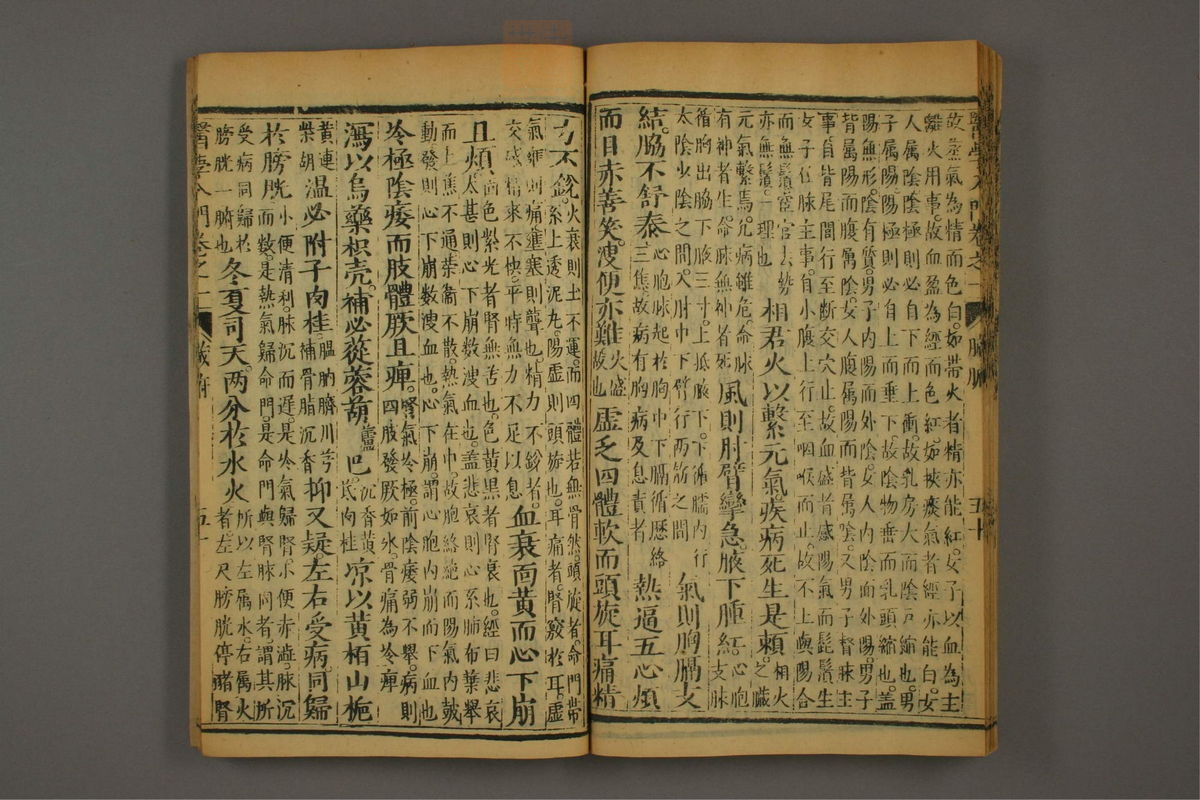 醫學入門卷之一 臟腑 五十
故蒸氣為精而色白。如帶火者精亦能紅。女子以血為主
離火用事。故血盈為經而色紅。如被痰氣者經亦能白。女
人属陰。陰極則必自下而上衝。故乳房大而陰戶縮也。男
子属陽。陽極則必自上而垂下。故陰物垂而乳頭縮也。盖
陽無形。陰有質。男子内陽而外陰。女人内陰而外陽。男子
背属陽而腹属陰。女人腹属陽而背属陰。又男子督脉主
事。自背尾閭行至斷交穴止。故血盛者感陽氣而髭鬚生
女子任脉主事。自小腹上行至咽喉而止。故不上與陽合
而無鬚。宦官去勢
亦無鬚。一理也
相君火以繫元氣。疾病死生是賴。
相火
之臟
元氣繫焉。凡病雖危。命脉
有神者生。命脉無神者死
風則肘臂攣急。腋下腫紅。
心胞
支脉
循胸出脇下腋三寸。上抵腋下。下循臑内行
太陰少陰之間。入肘中下臂行兩筋之間
氣則胸膈支
結。脇不舒泰
心胞脉起於胸中下膈循歷絡
三焦。故病有胸病及息責者
熱逼五心煩
而目赤善笑。溲便亦難
火盛
故也
虛乏四體軟而頭旋耳痛精
力不錄。
火衰則土不運。而四體若無骨然。頭旋者。命門帶
系上透泥丸。陽虛則頭旋也。耳痛者。腎竅於耳。虛
氣壅則痛。壅塞則聾也。精力不錄者。
交感精來不快。平時無力不足以息
血衰面黃而心下崩
且煩。
面色紫光者腎無苦也。色黃黑者腎衰也。經曰悲哀
太甚則心下崩數溲血也。盖悲哀則心系肺布葉舉
而上焦不通。榮衛不散。熱氣在中。故胞絡絕而陽氣内皷
動發則心下崩數溲血也。心下崩。謂心胞内崩而下血也
冷極陰痿而肢體厥且痺。
腎氣冷極。前陰痿弱不舉。病則
四肢發厥如氷。骨痛為冷痺
瀉以烏藥枳壳。補必蓯蓉葫蘆巴。
沉香黃
芪肉桂
凉以黃栢山梔
黃連
柴胡
溫必附子肉桂。
腽肭臍川芎
補骨脂沉香
抑又疑左右受病。同歸
於膀胱
小便清利。脉沉而遲。是冷氣歸腎。小便赤澁。脉沉
而數。是熱氣歸命門。是命門與腎脉同者。謂其所
受病同歸於
膀胱一腑也
冬夏司天。兩分於水火
所以左属水。右属火
者。左尺膀胱停豬腎
醫學入門卷之一 臟腑 五十一